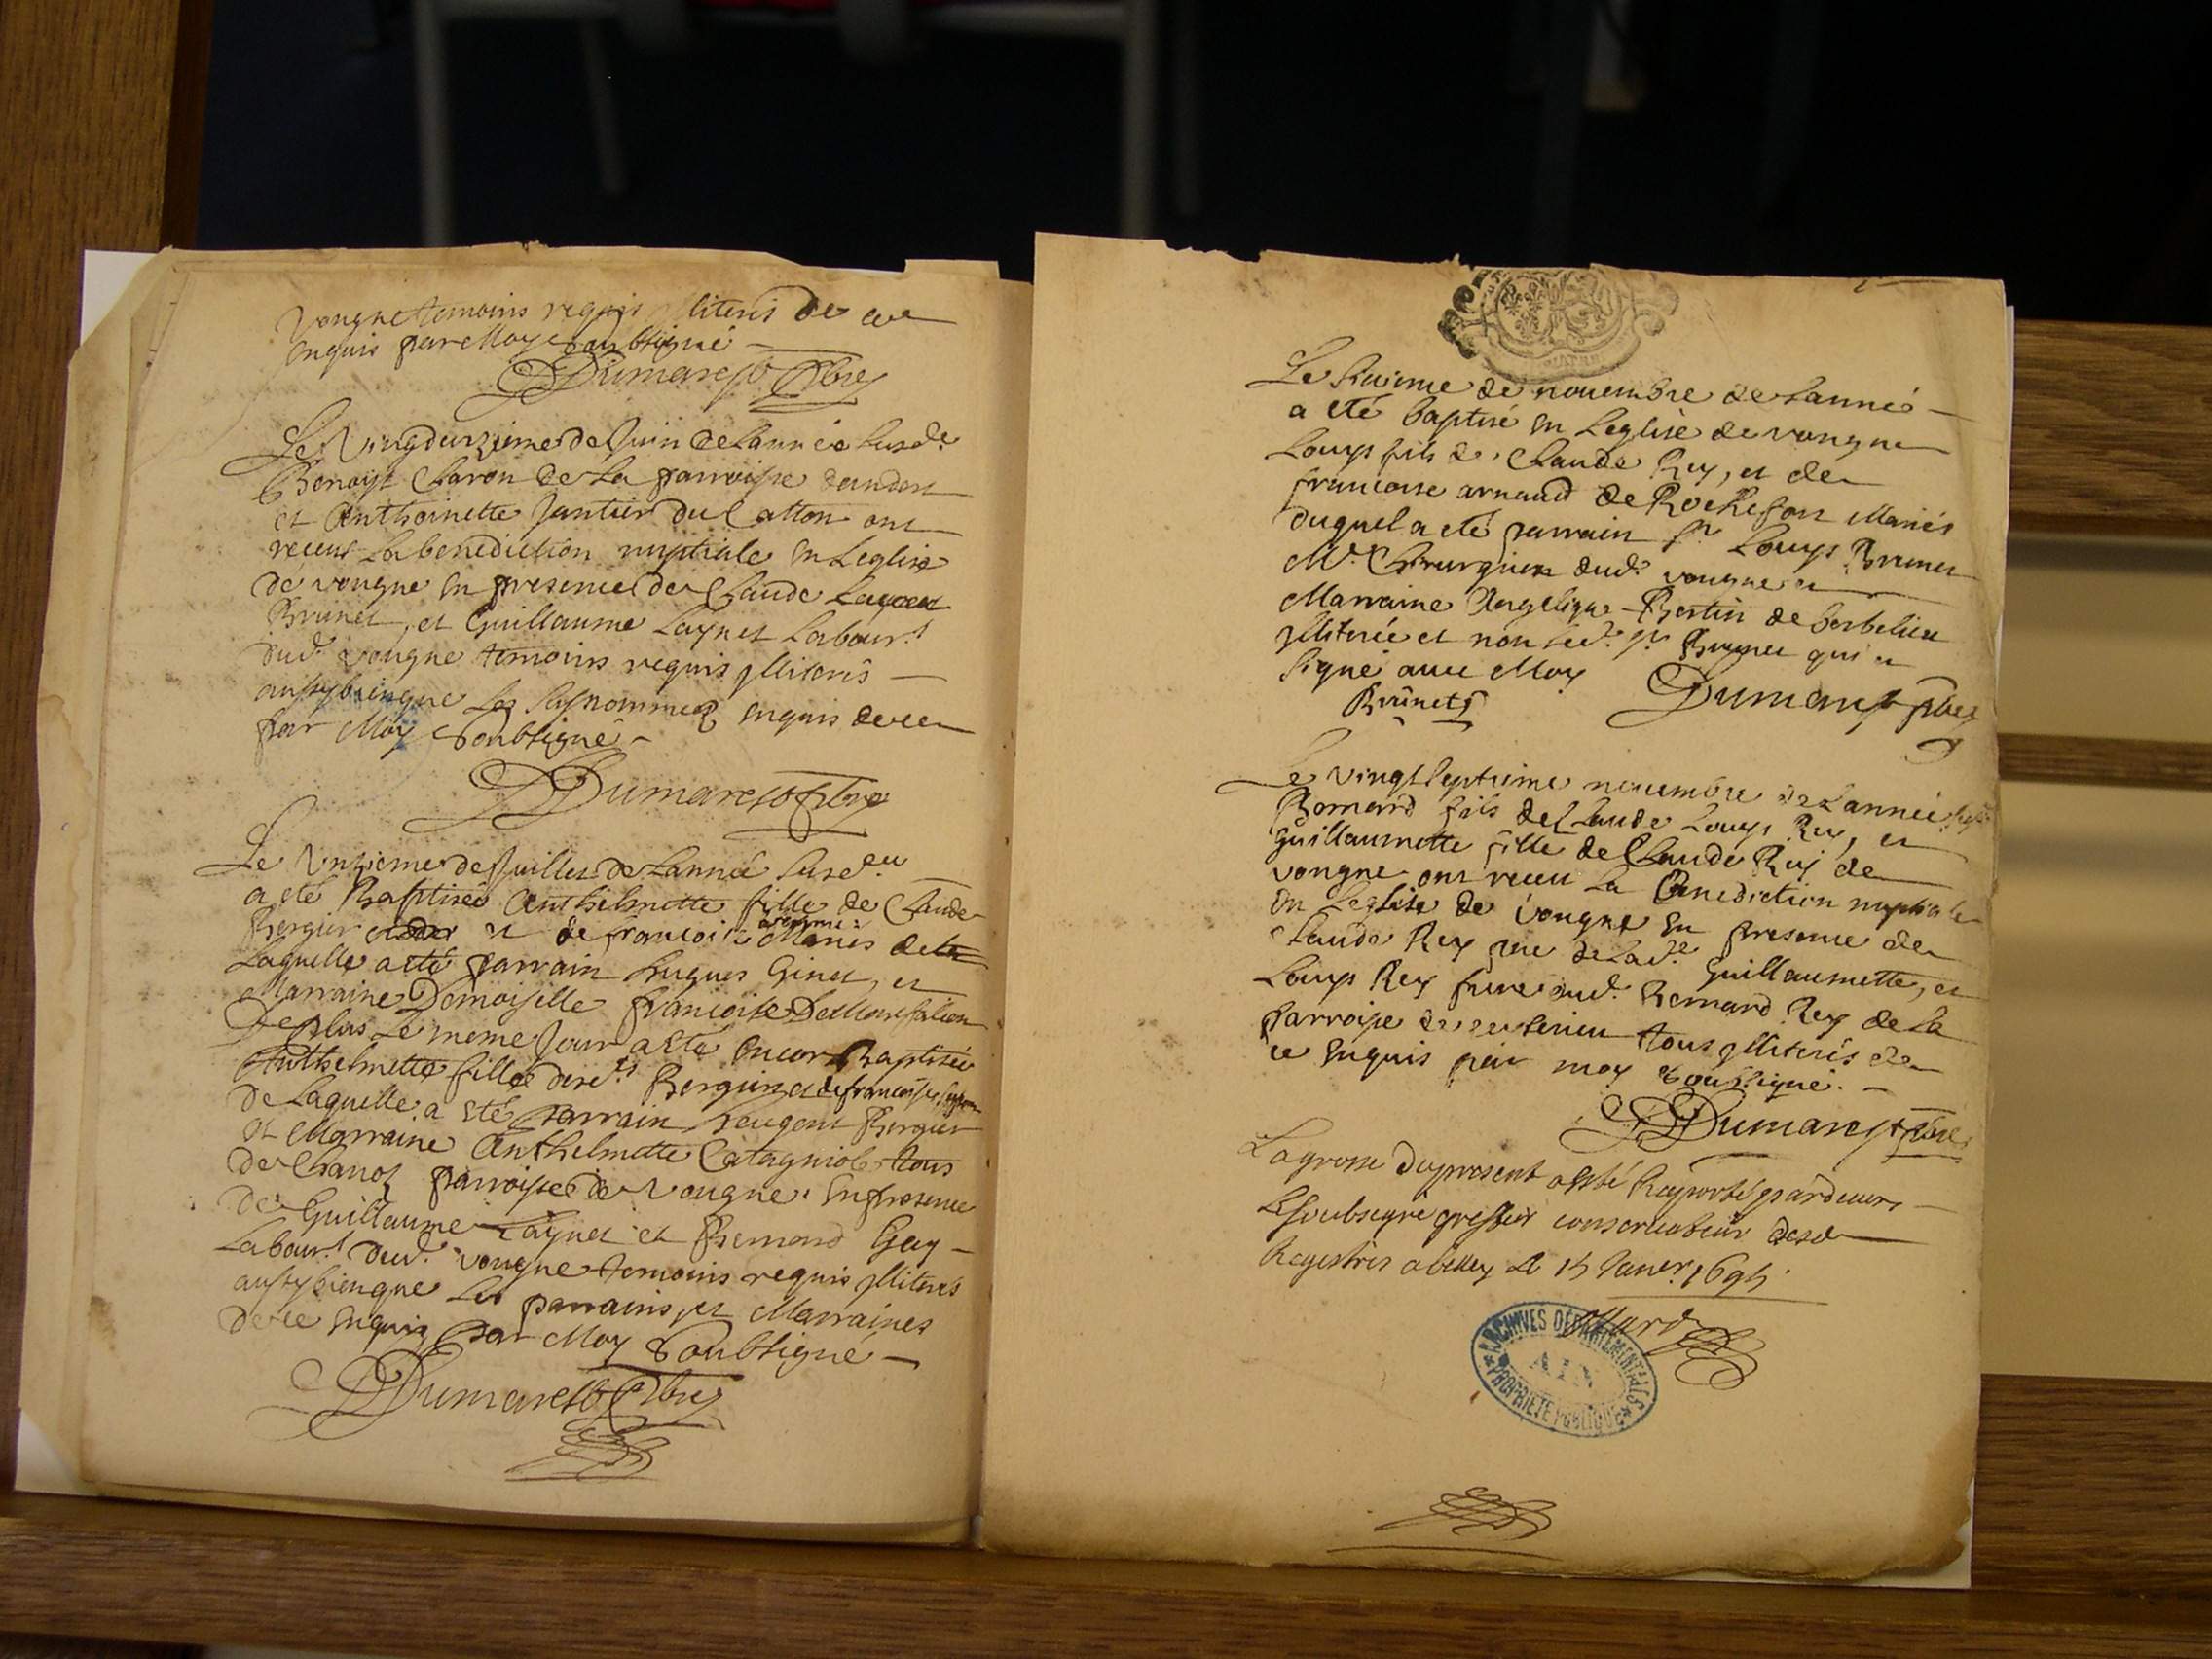 vongne temoins requis illiteris de ce
enquis par Moy soubsigné
Dumarest pbre
Le vingdeuzieme de Juin de Lannée susd.e
Benoist Charon de La parroisse dandert
et Anthoinette Jantier du Catton ont
receus La benediction nuptiale en Leglise
de vongne en presence de Claude
Brunet, et Guillaume Laynet Labour.s
dud. vongne temoins requis illiterés
aussybienque Les susnommez enquis de ce
par Moy soubsigné
Dumarest pbre
Le Unzieme de Juillet de Lannée susd.
a eté Baptisée Anthelmette fille de Claude
Bergier et de francoise Mariés de
Laquelle a eté parrain hugues Ginet, et
Marraine Demoiselle francoise
De plus Le meme Jour a eté encor Baptisée
Anthelmette fille desd.s Bergier et de francoise
de Laquelle a eté parrain Bergier
et Marraine Anthelmette Catagniole tous
de Chanoz parroisse de vongne en presence
de Guillaume Laynet et Bernard Guy
Labour.s dud. vongne temoins requis illiterés
aussybienque Les parrains, et Marraines
de ce enquis par Moy soubsigné
Dumarest pbre
Le huime de novembre de Lannée
a eté baptisé en Leglise de vongne
Louys fils de Claude Rey, et de
francoise arnaud de Rochefort Mariés
duquel a eté parrain s.r Louys Brunet
M.e Chirurgien dud. vongne et
Marraine Angelique Bertin de
illiterée et non led. s.r Brunet qui a
signé avec Moy
Brunet Dumarest pbre
Le vingtseptieme novembre de Lannée
Bernard fils de Claude Louys Rey, et
Guillaumette fille de Claude Rey de
vongne ont receu La Benediction nuptiale
en Leglise de vongne en presence de
Claude Rey pere de Lad.e Guillaumette, et
Louys Rey frere dud. Bernard Rey de La
parroisse de tous illiterés de
ce enquis par moy soubsigné.
Dumarest pbre
La grosse du present a esté Raporté pardevers
Le soubsigné greffier conservateur desd
Registres a belley Le 15 Janer. 1695
ARCHIVES DÉPARTEMENTALES
AIN
PROPRIÉTÉ PUBLIQUE